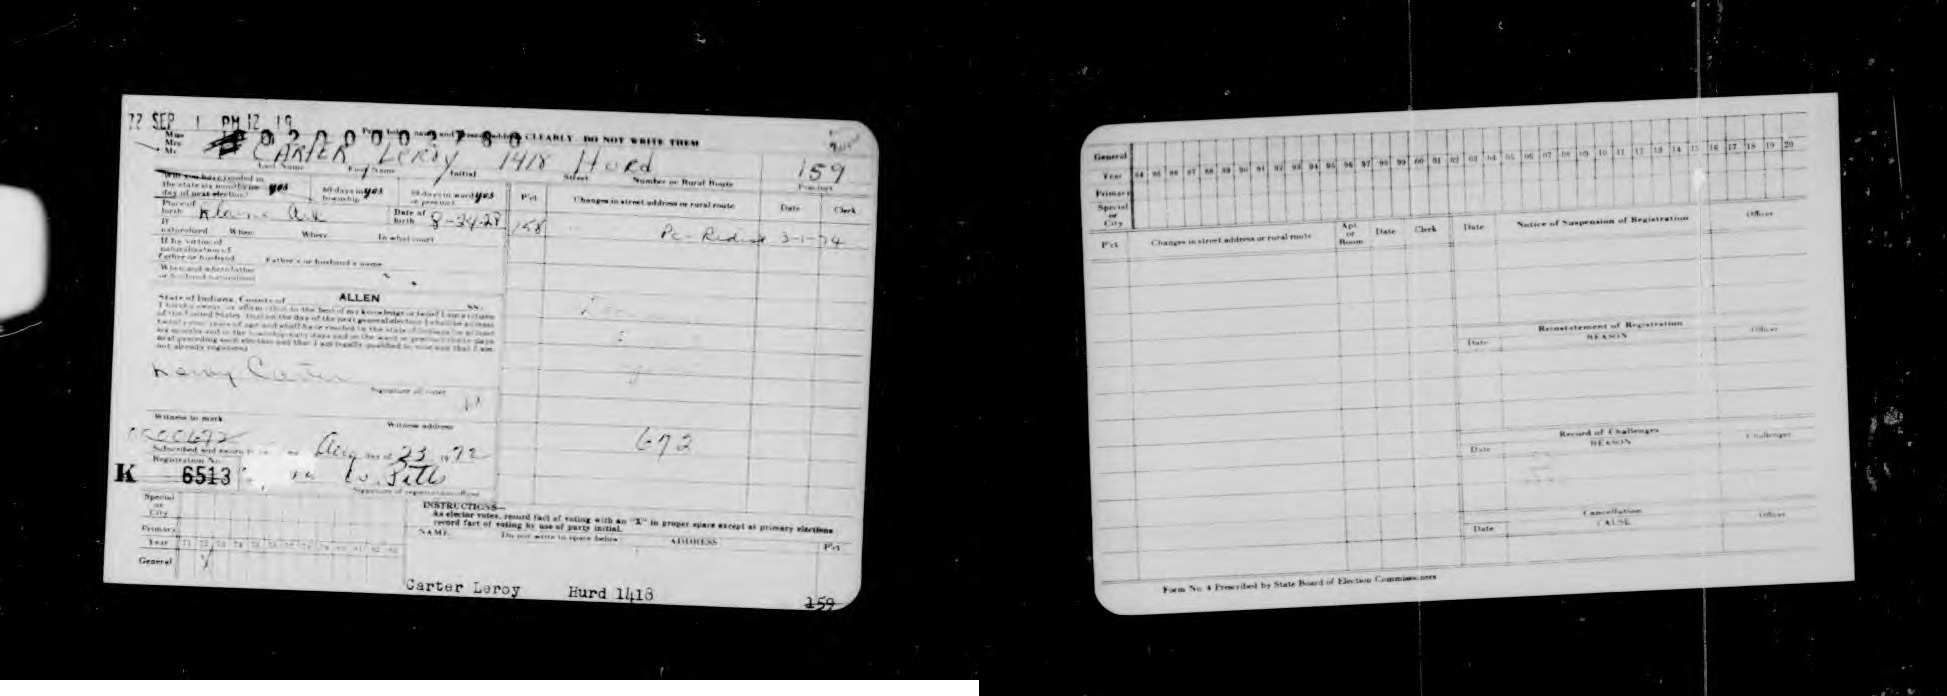 72 SEP 1 PM 12 19
0200003780
CLEARLY DO NOT WRITE THEM
Miss
Mrs
Mr.
CARTER LEROY 1418 HURD 159
Last Name First Name Initial Street Number or Rural Route Precinct
Will you have resided in
the state six months on yes 60 days in yes 30 days in ward yes
day of next election? township or precinct
Place of
birth Elaine Ark Date of birth 8-24-29
If
naturalized When Where In what court
If by virtue of
naturalization of
father or husband Father's or husband's name
When and where father
or husband naturalized
P'ct Changes in street address or rural route Date Clerk
158 Pc- 3-1-74
State of Indiana, County of ALLEN SS:
I hereby swear or affirm that to the best of my knowledge or belief I am a citizen
of the United States, that on the day of the next general election I shall be at least
years of age and shall have resided in the state of Indiana for at least
six months and in the township sixty days and in the ward or precinct thirty days
next preceding such election and that I am legally qualified to vote and that I am
not already registered
Leroy Carter
Signature of voter
Witness to mark Witness address
Subscribed and sworn Aug day of 23 1972
Registration No.
K 6513
Signature of registration officer
672
Special
or
City
Primary
Year
General
INSTRUCTIONS—
As elector votes, record fact of voting with an "X" in proper space except at primary elections
record fact of voting by use of party initial.
NAME Do not write in space below ADDRESS P'ct
Carter Leroy Hurd 1418 159
General
Year 84 85 86 87 88 89 90 91 92 93 94 95 96 97 98 99 00 01 02 03 04 05 06 07 08 09 10 11 12 13 14 15 16 17 18 19 20
Primary
Special
or
City
P'ct Changes in street address or rural route Apt or Room Date Clerk
Date Notice of Suspension of Registration Officer
Reinstatement of Registration
Date REASON Officer
Record of Challenges
Date REASON Challenger
Cancellation
Date CAUSE Officer
Form No. 4 Prescribed by State Board of Election Commissioners